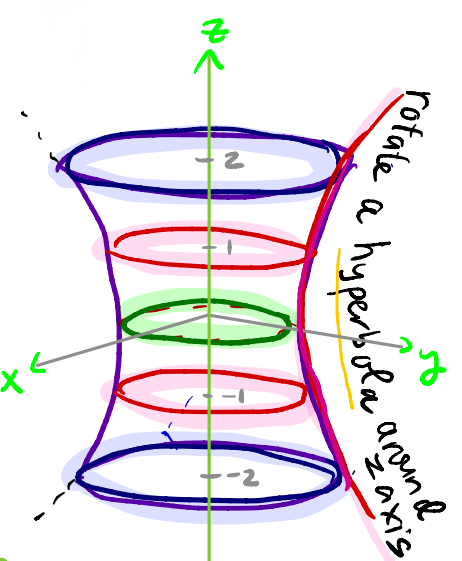 z
2
1
x
y
-1
-2
rotate a hyperbola around
z axis